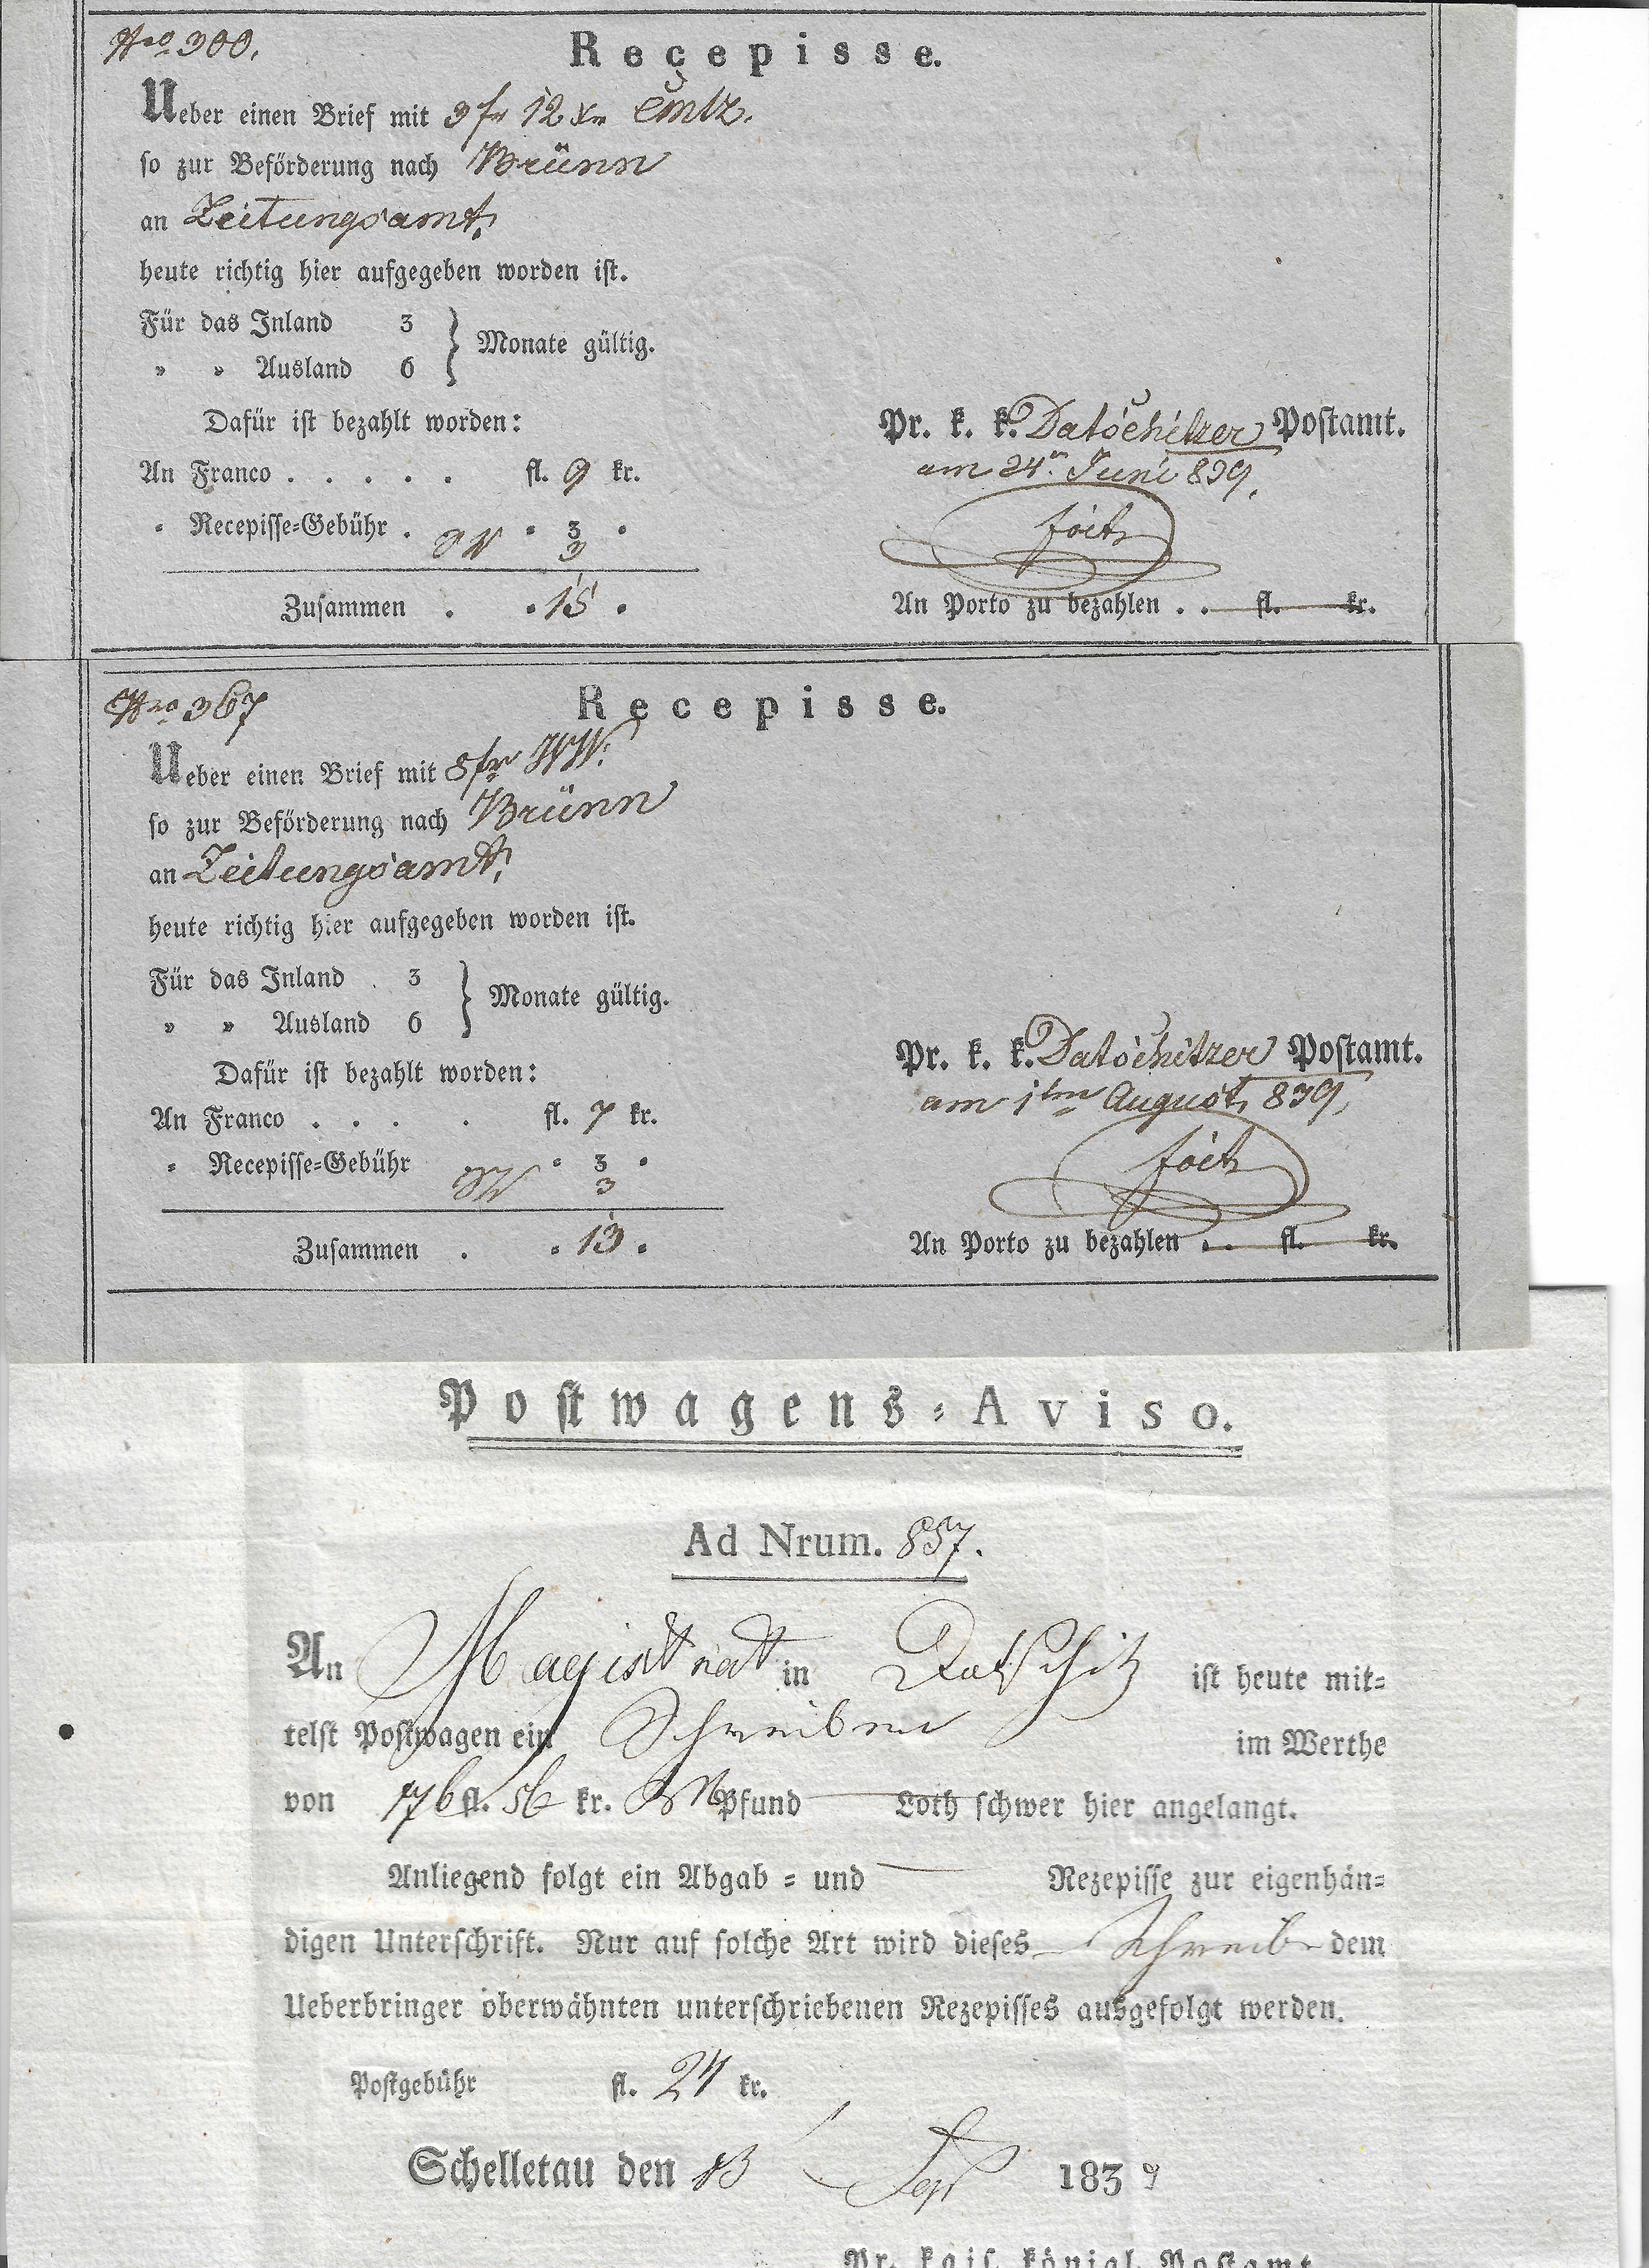 Nro 300.
Recepisse.
Ueber einen Brief mit 3 fr 12 xr
so zur Beförderung nach Brünn
an Zeitungsamt.
heute richtig hier aufgegeben worden ist.
Für das Inland 3
} Monate gültig.
" " Ausland 6
Dafür ist bezahlt worden:
Pr. k. k. Datschitzer Postamt.
An Franco . . . . . fl. 9 kr.
am 24n Juni 839.
" Recepisse-Gebühr . " 3 "
3
Zusammen . " 15 "
An Porto zu bezahlen . . fl. kr.
Nro 367
Recepisse.
Ueber einen Brief mit 8 fr WW.
so zur Beförderung nach Brünn
an Zeitungsamt.
heute richtig hier aufgegeben worden ist.
Für das Inland . 3
} Monate gültig.
" " Ausland 6
Dafür ist bezahlt worden:
Pr. k. k. Datschitzer Postamt.
am 1ten August 839.
An Franco . . . . fl. 7 kr.
" Recepisse-Gebühr " 3 "
3
Zusammen . " 13 "
An Porto zu bezahlen . . fl. kr.
Postwagens-Aviso.
Ad Nrum. 857.
An Magistrat in Datschitz ist heute mit-
telst Postwagen ein Schreiben im Werthe
von 176 fl. 56 kr. Pfund Loth schwer hier angelangt.
Anliegend folgt ein Abgab- und Rezepisse zur eigenhän-
digen Unterschrift. Nur auf solche Art wird dieses Schreiben dem
Ueberbringer oberwähnten unterschriebenen Rezepisses ausgefolgt werden.
Postgebühr fl. 24 kr.
Schelletau den 13 Sept 1839
Pr. kais. königl. Postamt